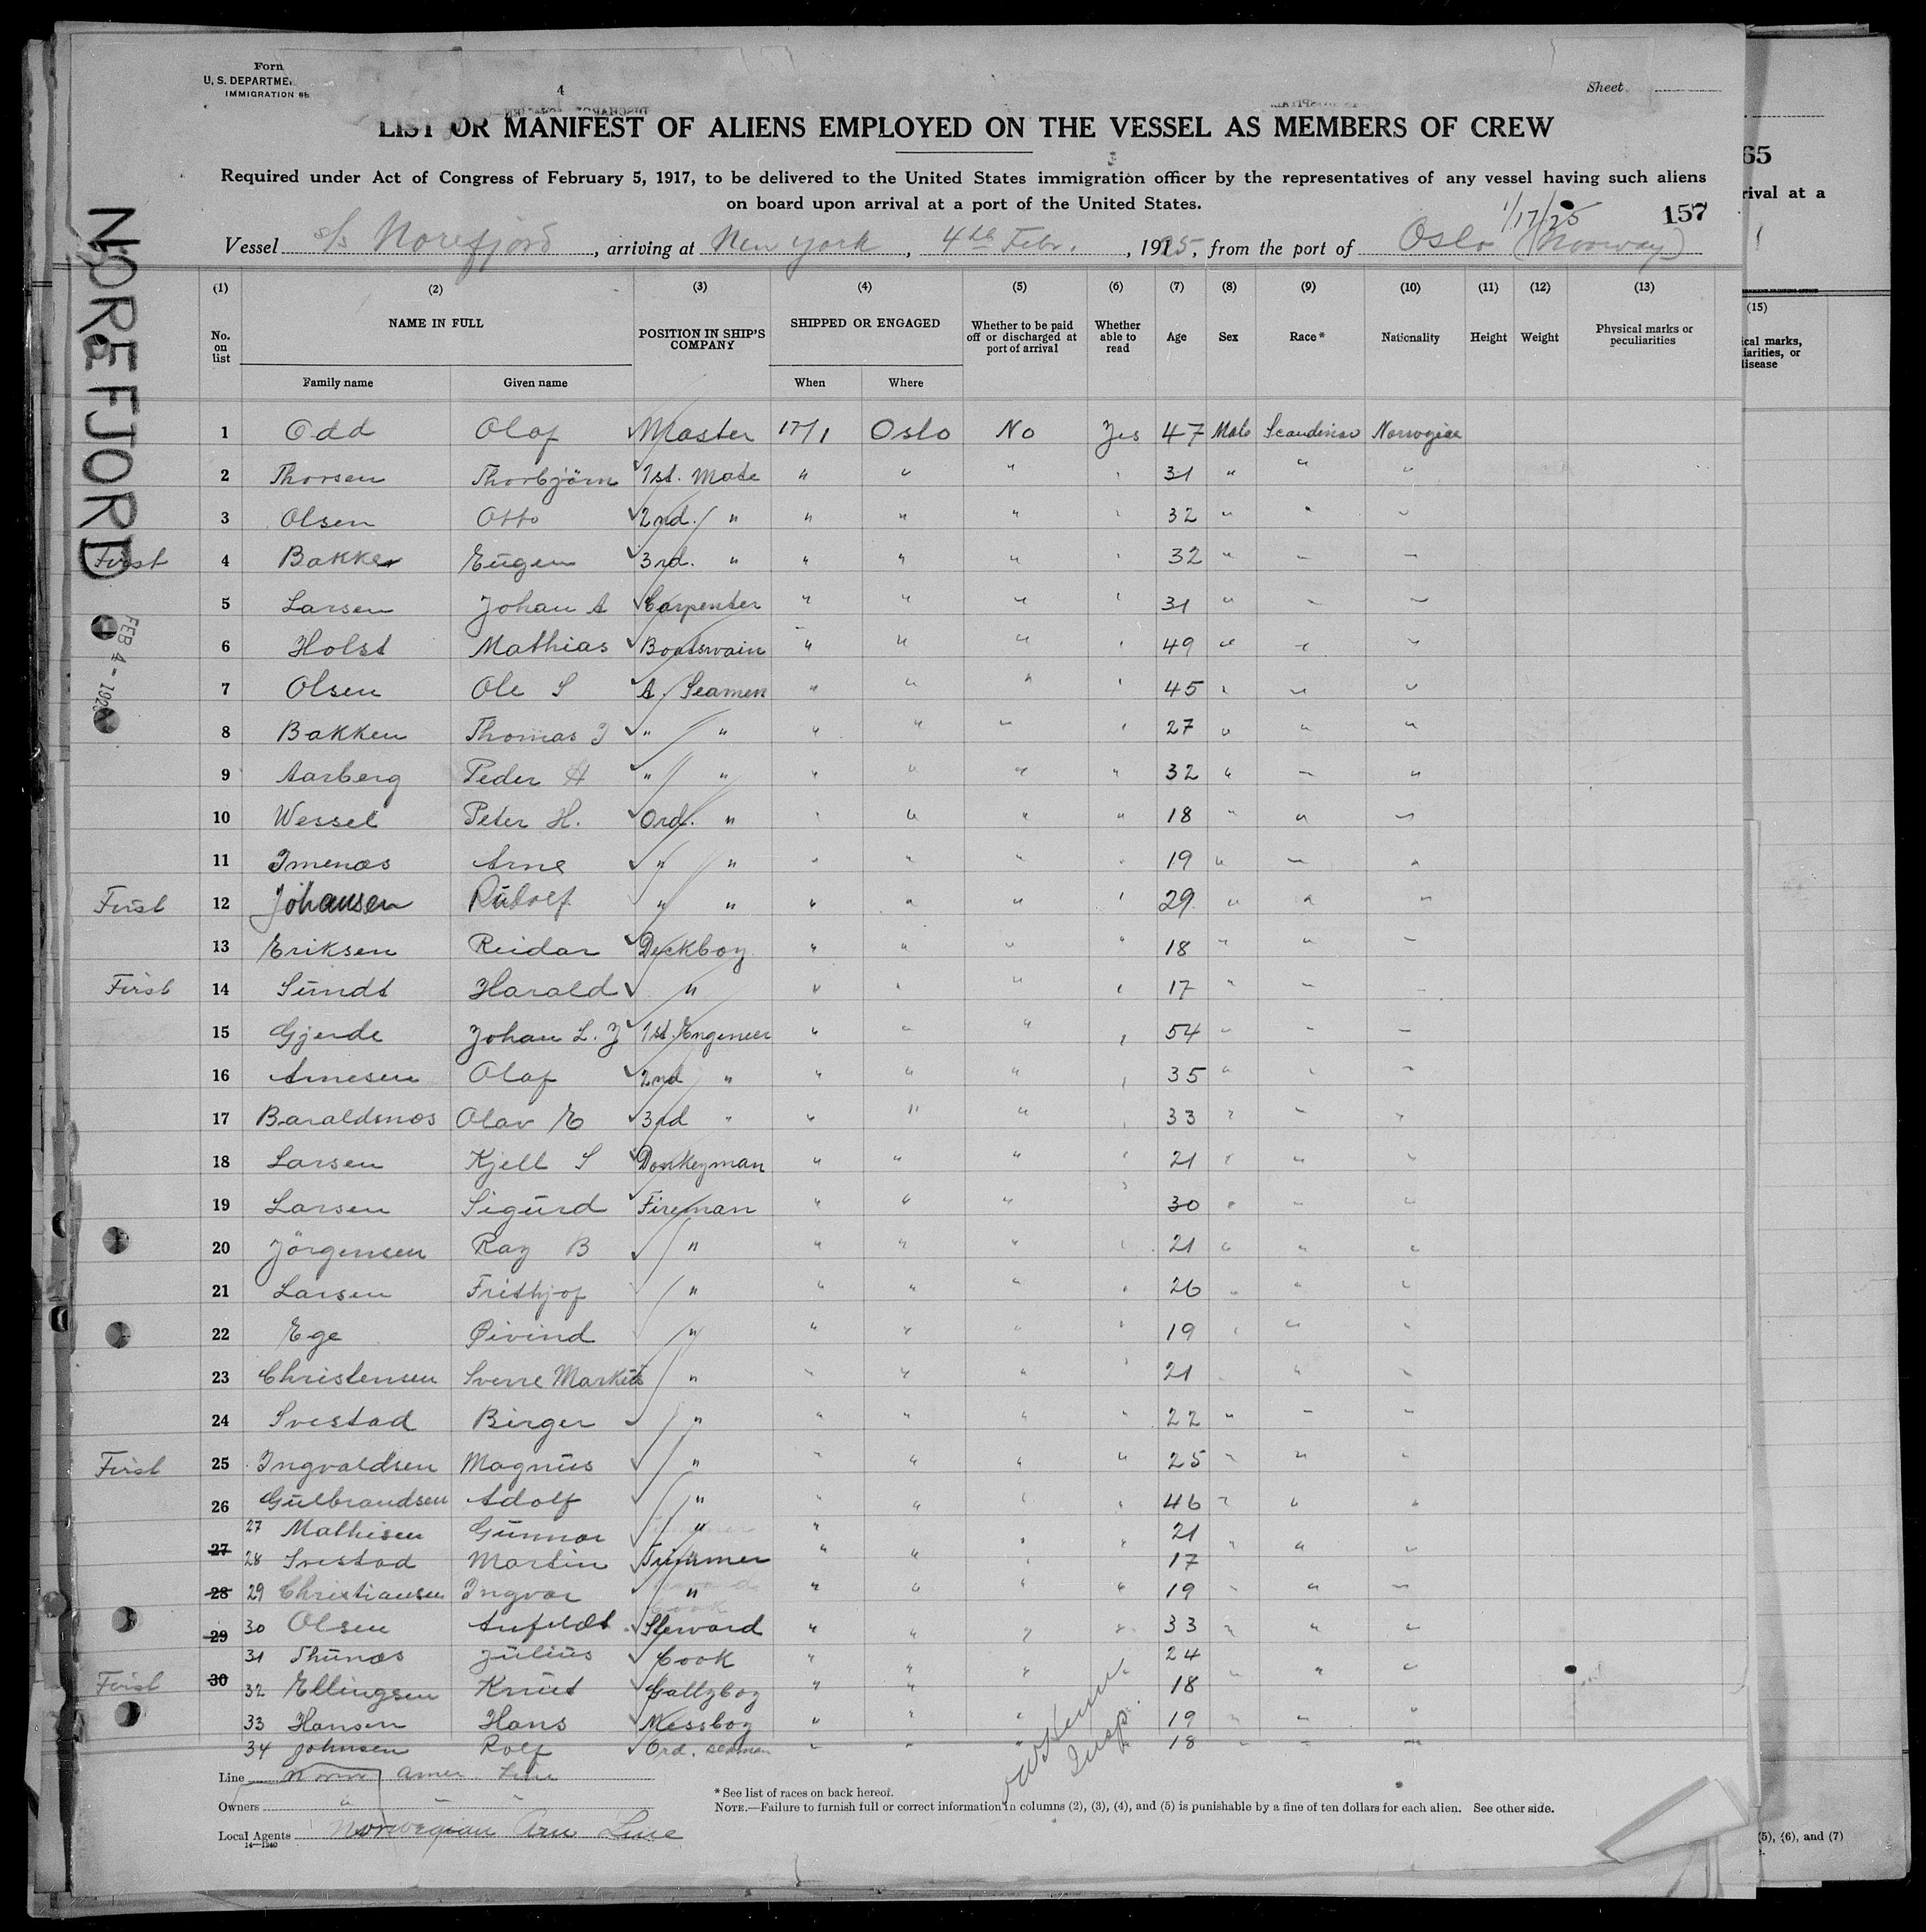 Form
U. S. DEPARTME
IMMIGRATION SE
4
Sheet
LIST OR MANIFEST OF ALIENS EMPLOYED ON THE VESSEL AS MEMBERS OF CREW
Required under Act of Congress of February 5, 1917, to be delivered to the United States immigration officer by the representatives of any vessel having such aliens
on board upon arrival at a port of the United States.
1/17/25
157
Vessel S/S Norefjord, arriving at New York, 4th Febr., 1925, from the port of Oslo (Norway)
NOREFJORD
FEB 4 - 192
65
rival at a
(1) (2) (3) (4) (5) (6) (7) (8) (9) (10) (11) (12) (13) (15)
No. on list NAME IN FULL POSITION IN SHIP'S COMPANY SHIPPED OR ENGAGED Whether to be paid off or discharged at port of arrival Whether able to read Age Sex Race* Nationality Height Weight Physical marks or peculiarities
ical marks,
liarities, or
disease
Family name Given name When Where
1 Odd Olaf Master 17/1 Oslo No Yes 47 Male Scandinav Norwegian
2 Thorsen Thorbjörn 1st. Mate " " " " 31 " " "
3 Olsen Otto 2nd. " " " " " 32 " " "
First 4 Bakke Eugen 3rd. " " " " " 32 " " "
5 Larsen Johan A Carpenter " " " " 31 " " "
6 Holst Mathias Boatswain " " " " 49 " " "
7 Olsen Ole S A. Seamen " " " " 45 " " "
8 Bakken Thomas J " " " " " " 27 " " "
9 Aarberg Peder A " " " " " " 32 " " "
10 Wessel Peter H. Ord. " " " " " 18 " " "
11 Imenæs Arne " " " " " " 19 " " "
First 12 Johansen Rudolf " " " " " " 29 " " "
13 Eriksen Reidar Deckboy " " " " 18 " " "
First 14 Sundt Harald " " " " " 17 " " "
15 Gjerde Johan L. J 1st. Engeneer " " " " 54 " " "
16 Arnesen Olaf 2nd " " " " " 35 " " "
17 Baraldsnæs Olav E 3rd " " " " " 33 " " "
18 Larsen Kjell S Donkeyman " " " " 21 " " "
19 Larsen Sigurd Fireman " " " " 30 " " "
20 Jörgensen Ray B " " " " " 21 " " "
21 Larsen Frithjof " " " " " 26 " " "
22 Ege Øivind " " " " " 19 " " "
23 Christensen Sverre Markus " " " " " 21 " "
24 Svestad Birger " " " " " 22 " " "
First 25 Ingvaldsen Magnus " " " " " 25 " " "
26 Gulbrandsen Adolf " " " " " 46 " " "
27 Mathisen Gunnar " " 21
27 28 Svestad Martin Trimmer " " " " 17 " " "
28 29 Christiansen Ingvar " " " " " 19 " " "
29 30 Olsen Anfeldt Steward " " " " 33 " " "
31 Thunæs Julius Cook " " " " 24 " " "
First 30 32 Ellingsen Knut Galleyboy " " 18
33 Hansen Hans Messboy " " " 19 " " "
34 Johnsen Rolf Ord. seaman " " " 18 " " "
Insp.
Line Norw. Amer. Line
Owners " " "
Local Agents Norwegian Am Line
14—1240
* See list of races on back hereof.
NOTE.—Failure to furnish full or correct information in columns (2), (3), (4), and (5) is punishable by a fine of ten dollars for each alien. See other side.
(5), (6), and (7)